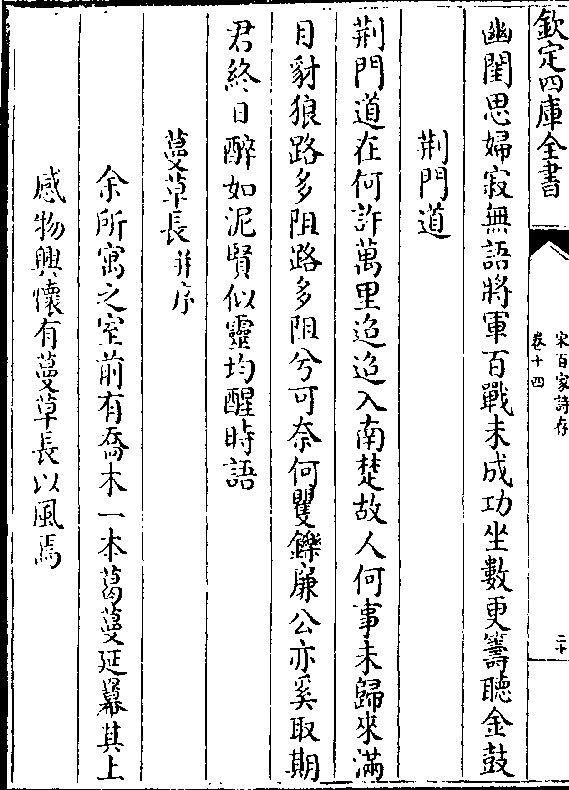 欽定四庫全書
宋百家詩存
卷十四
二十
幽閨思婦寂無語將軍百戰未成功坐數更籌聽金鼓
荆門道
荆門道在何許萬里迢迢入南楚故人何事未歸來滿
目豺狼路多阻路多阻兮可奈何矍鑠廉公亦奚取期
君終日醉如泥賢似靈均醒時語
蔓草長并序
余所寓之室前有喬木一本葛蔓延羃其上
感物興懷有蔓草長以風焉